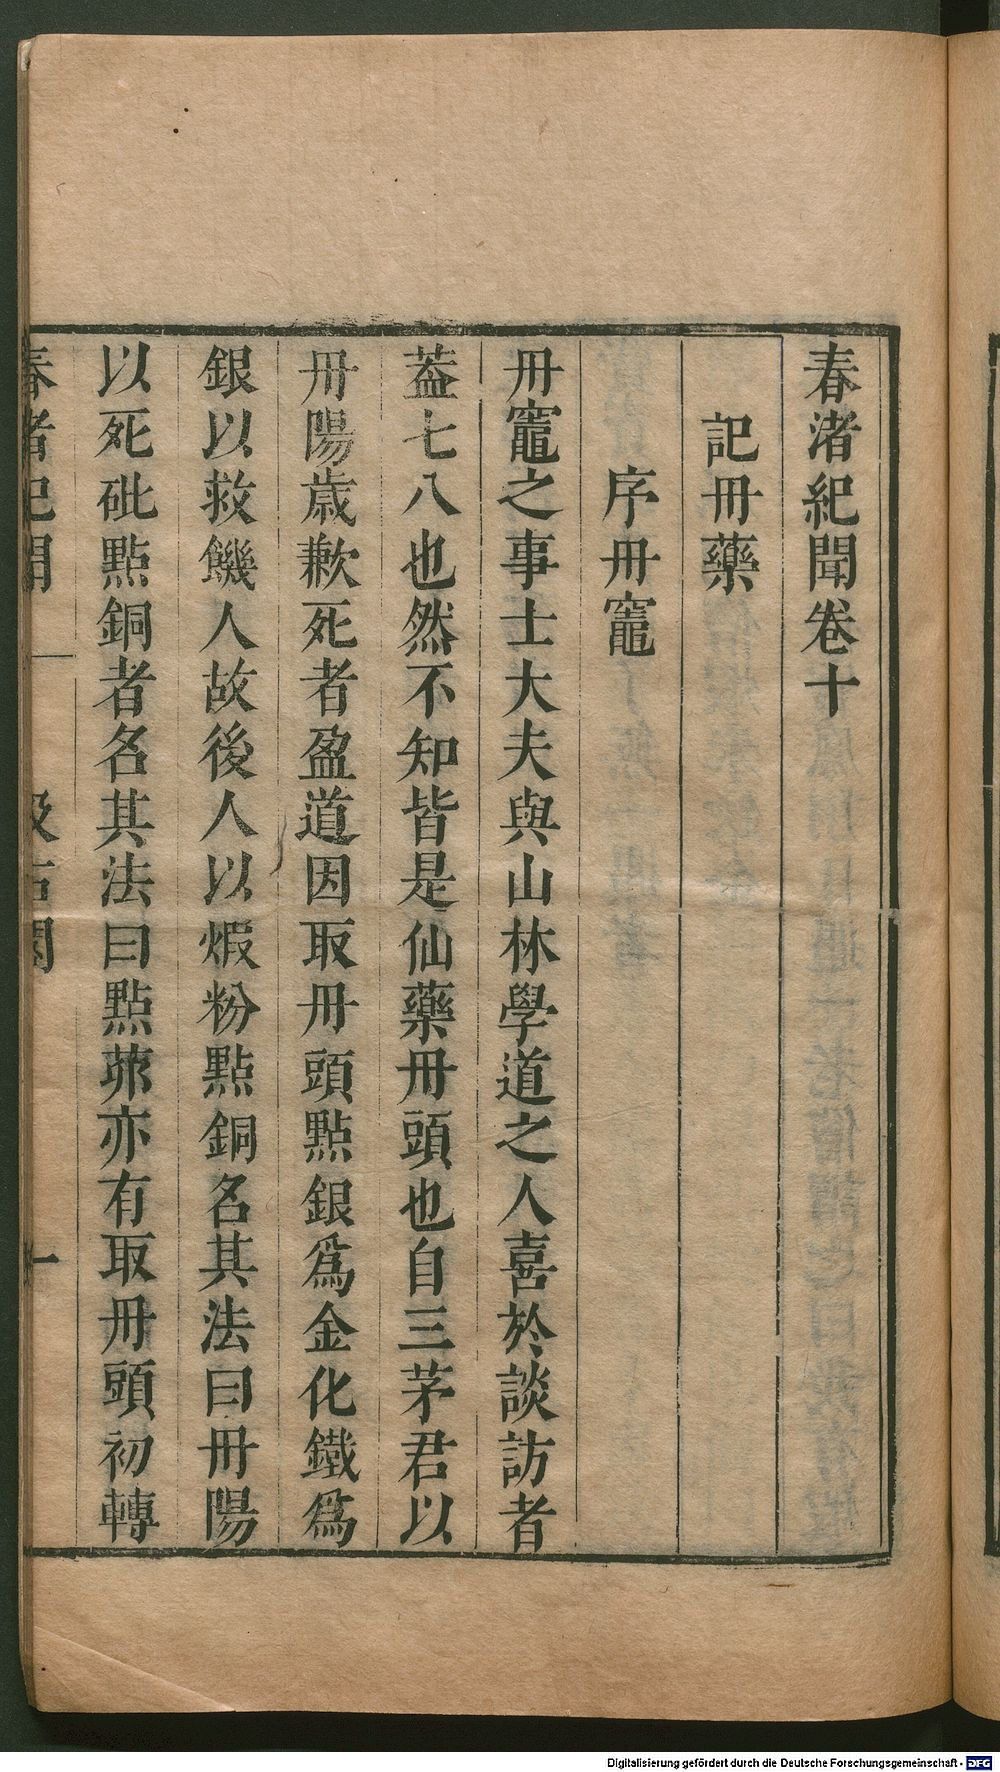 春渚紀聞卷十
記丹藥
序丹竈
丹竈之事士大夫與山林學道之人喜於談訪者
葢七八也然不知皆是仙藥丹頭也自三茅君以
丹陽歲歉死者盈道因取丹頭點銀爲金化鐵爲
銀以救饑人故後人以煆粉點銅名其法曰丹陽
以死砒點銅者名其法曰點茆亦有取丹頭初轉
春渚紀聞 一
Digitalisierung gefördert durch die Deutsche Forschungsgemeinschaft - DFG